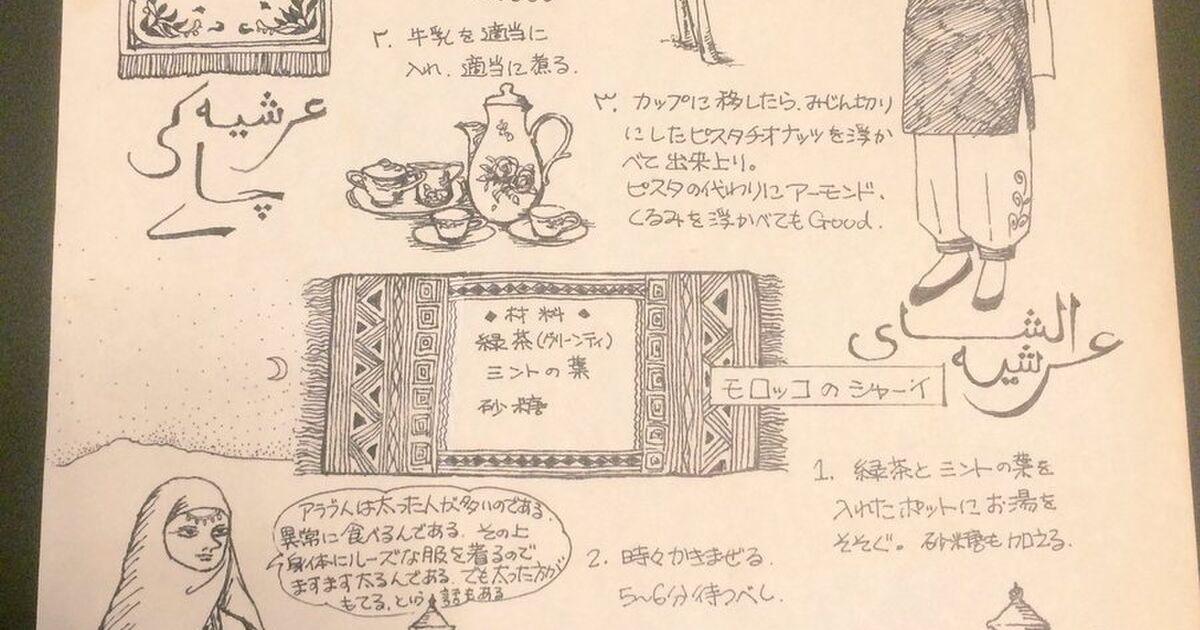 ۲. 牛乳を適当に
入れ、適当に煮る.
عرشیه کی
چاے
۳. カップに移したら、みじん切り
にしたピスタチオナッツを浮か
べて出来上り。
ピスタの代わりにアーモンド、
くるみを浮かべてもGood.
الشاى
عرشيه
◆材料◆
緑茶(グリーンティ)
ミントの葉
砂糖
モロッコのシャーイ
1. 緑茶とミントの葉を
入れたポットにお湯を
そそぐ。砂糖も加える.
2. 時々かきまぜる.
5〜6分待つべし.
アラブ人は太った人が多いのである.
異常に食べるんである. その上
身体にルーズな服を着るので
ますます太るんである. でも太った方が
もてる、という話もある